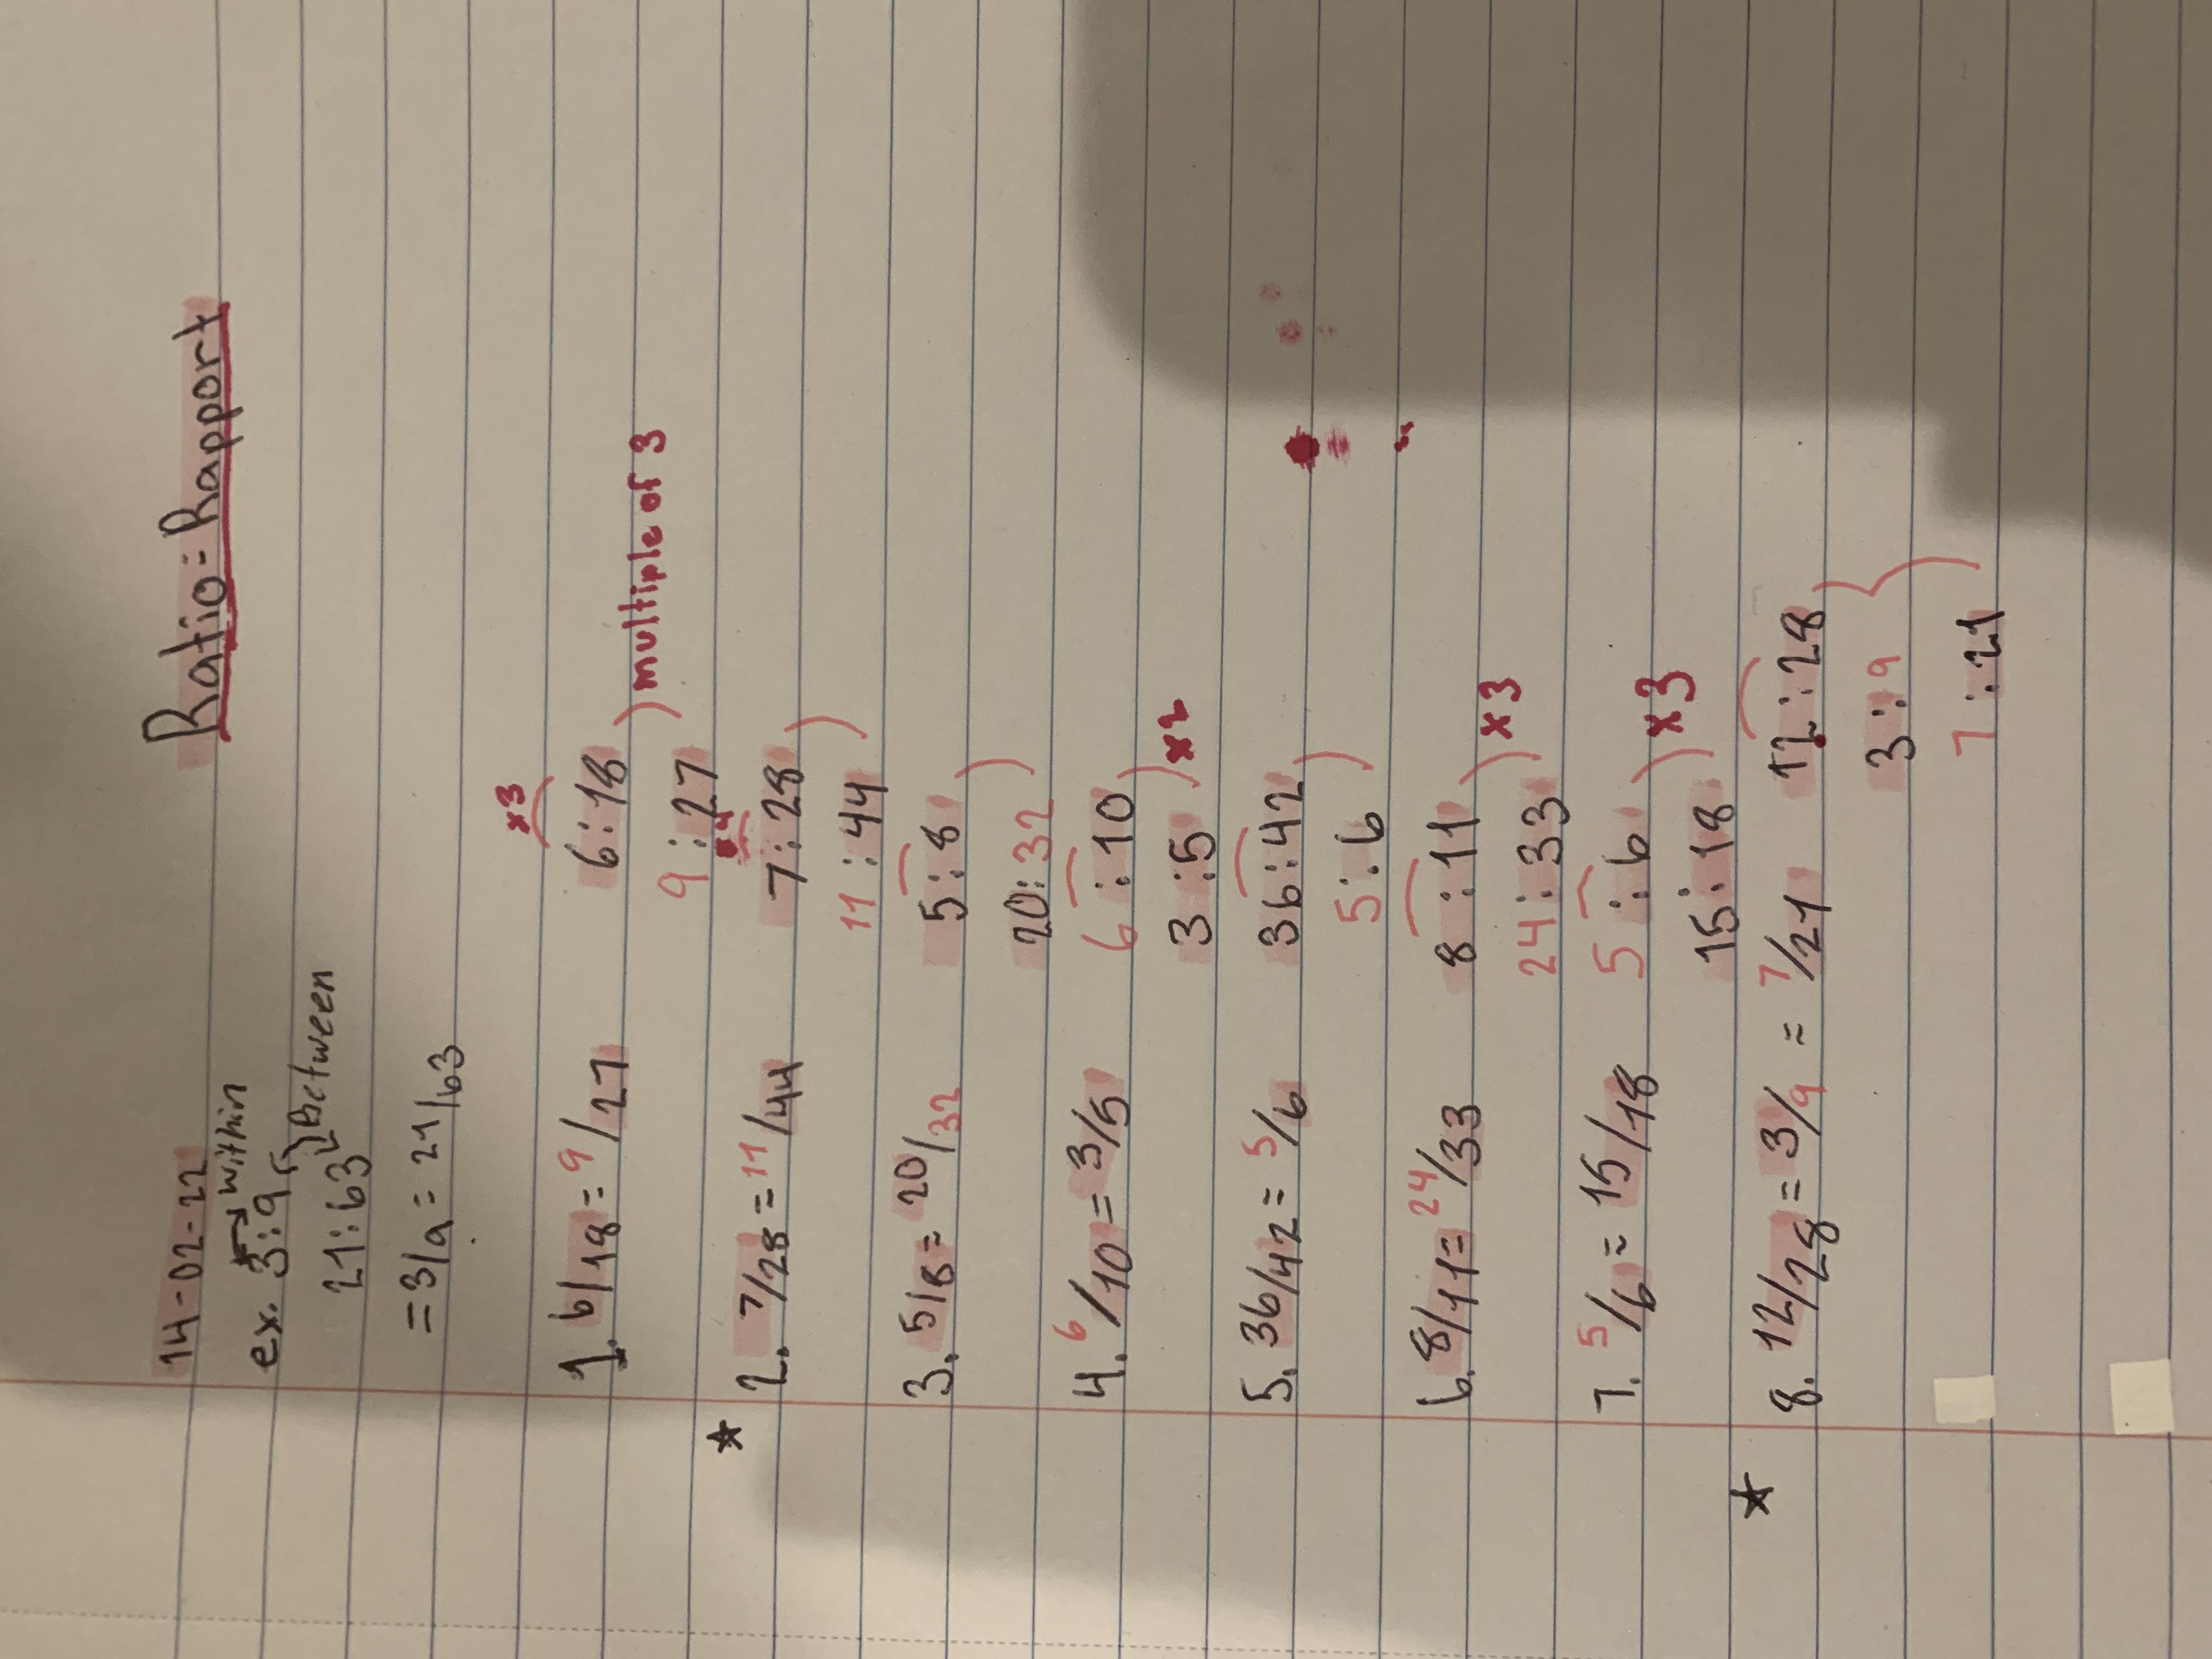 14-02-22 Ratio = Rapport
ex. 3:9 → within
21:63 Between
= 3/9 = 21/63
×3
1. 6/18 = 9/27 6:18
multiple of 3
9:27
×4
2. 7/28 = 11/44 7:28
11:44
3. 5/8 = 20/32 5:8
20:32
4. 6/10 = 3/5 6:10
×2
3:5
5. 36/42 = 5/6 36:42
5:6
6. 8/11 = 24/33 8:11
×3
24:33
7. 5/6 = 15/18 5:6
×3
15:18
8. 12/28 = 3/9 = 7/21 12:28
3:9
7:21